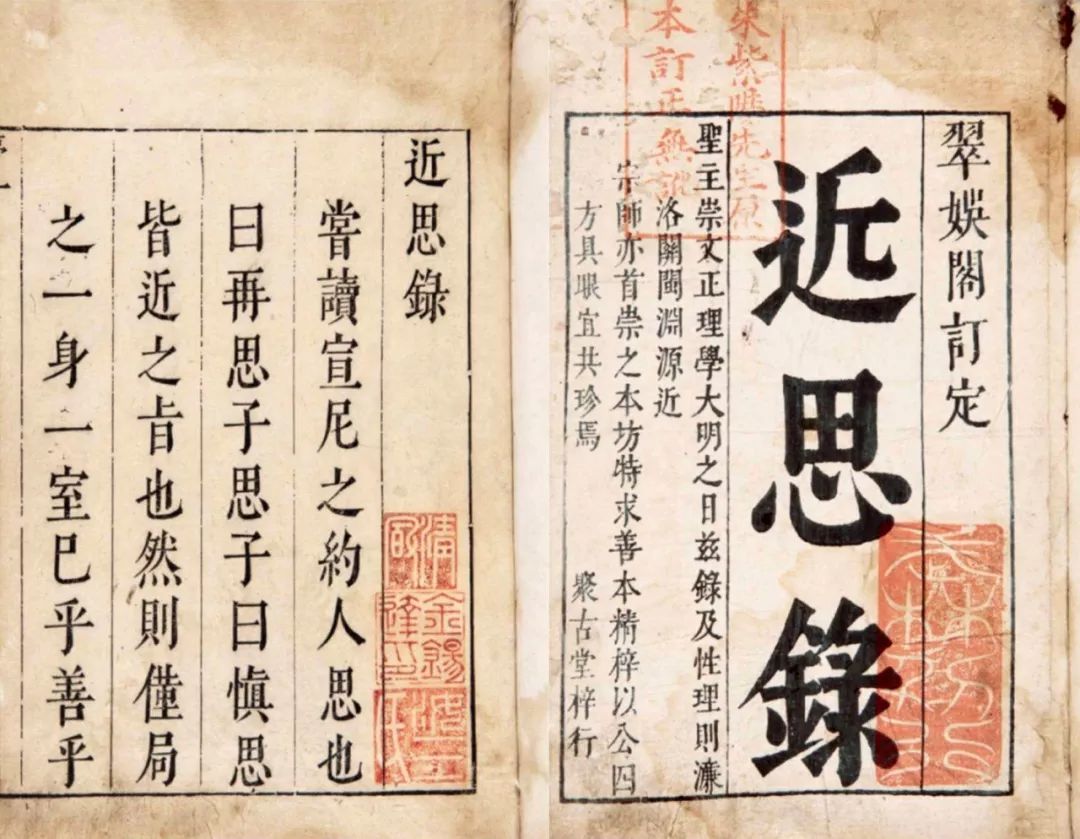 翠娛閣訂定
近思錄
聖主崇文正理學大明之日兹錄及性理則濂
洛關閩淵源近
宗師亦首崇之本坊特求善本精梓以公四
方具眼宜共珍焉
聚古堂梓行
朱紫陽先生原
本訂正無訛
近思錄
嘗讀宣尼之約人思也
曰再思子思子曰慎思
皆近之旨也然則僅局
之一身一室已乎善乎